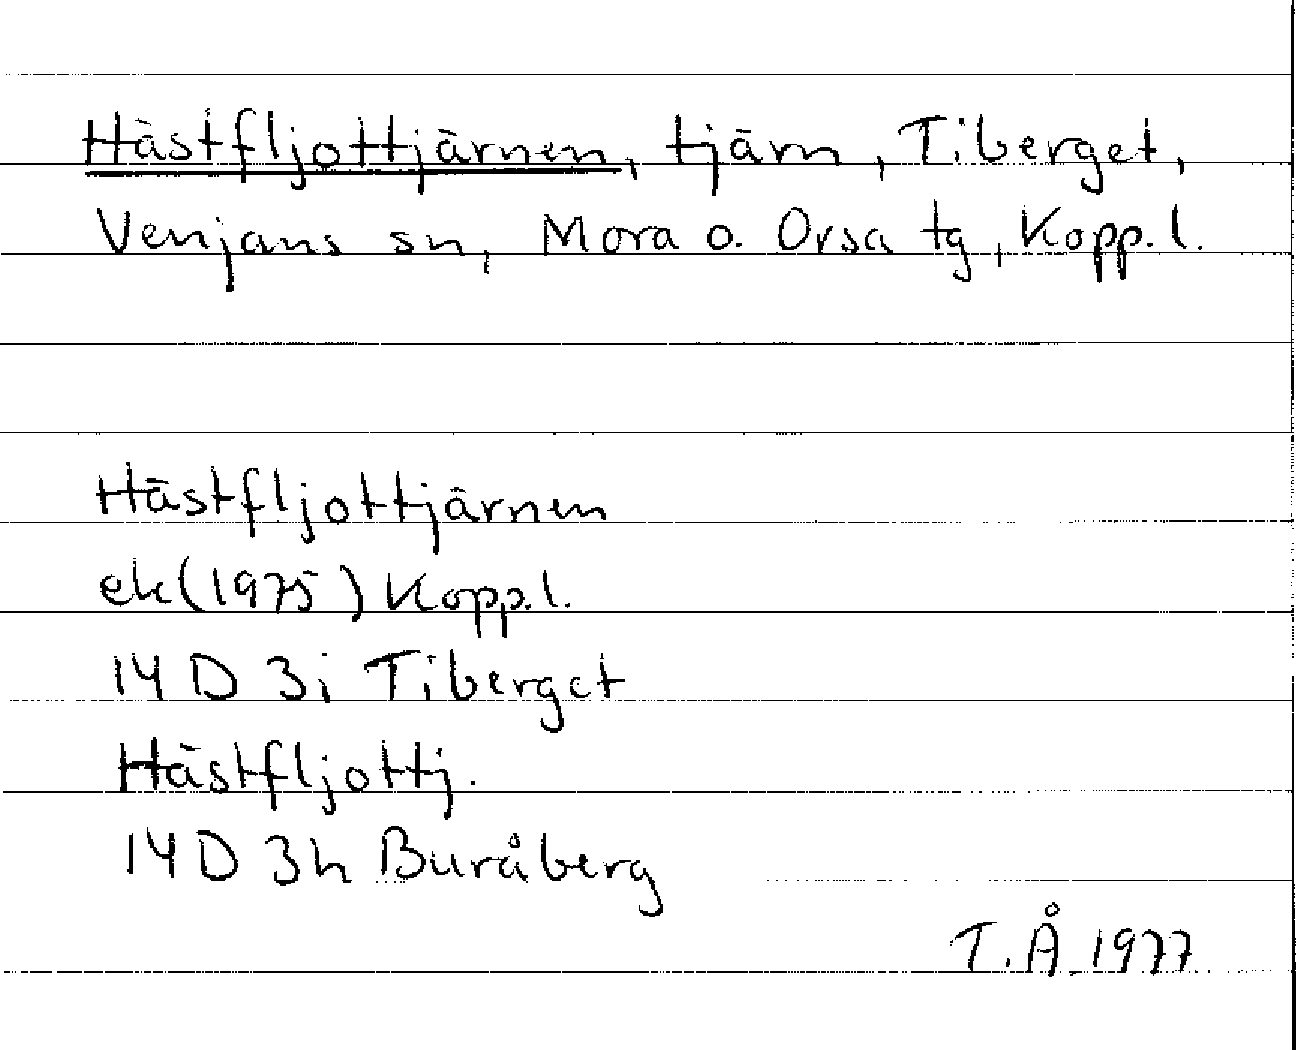 Hästfljottjärnen, tjärn, Tiberget,
Venjans sn, Mora o. Orsa tg, Kopp.l.
Hästfljottjärnen
ek(1975) Kopp.l.
14 D 3i Tiberget
Hästfljottj.
14 D 3h Buråberg
T.Å. 1977